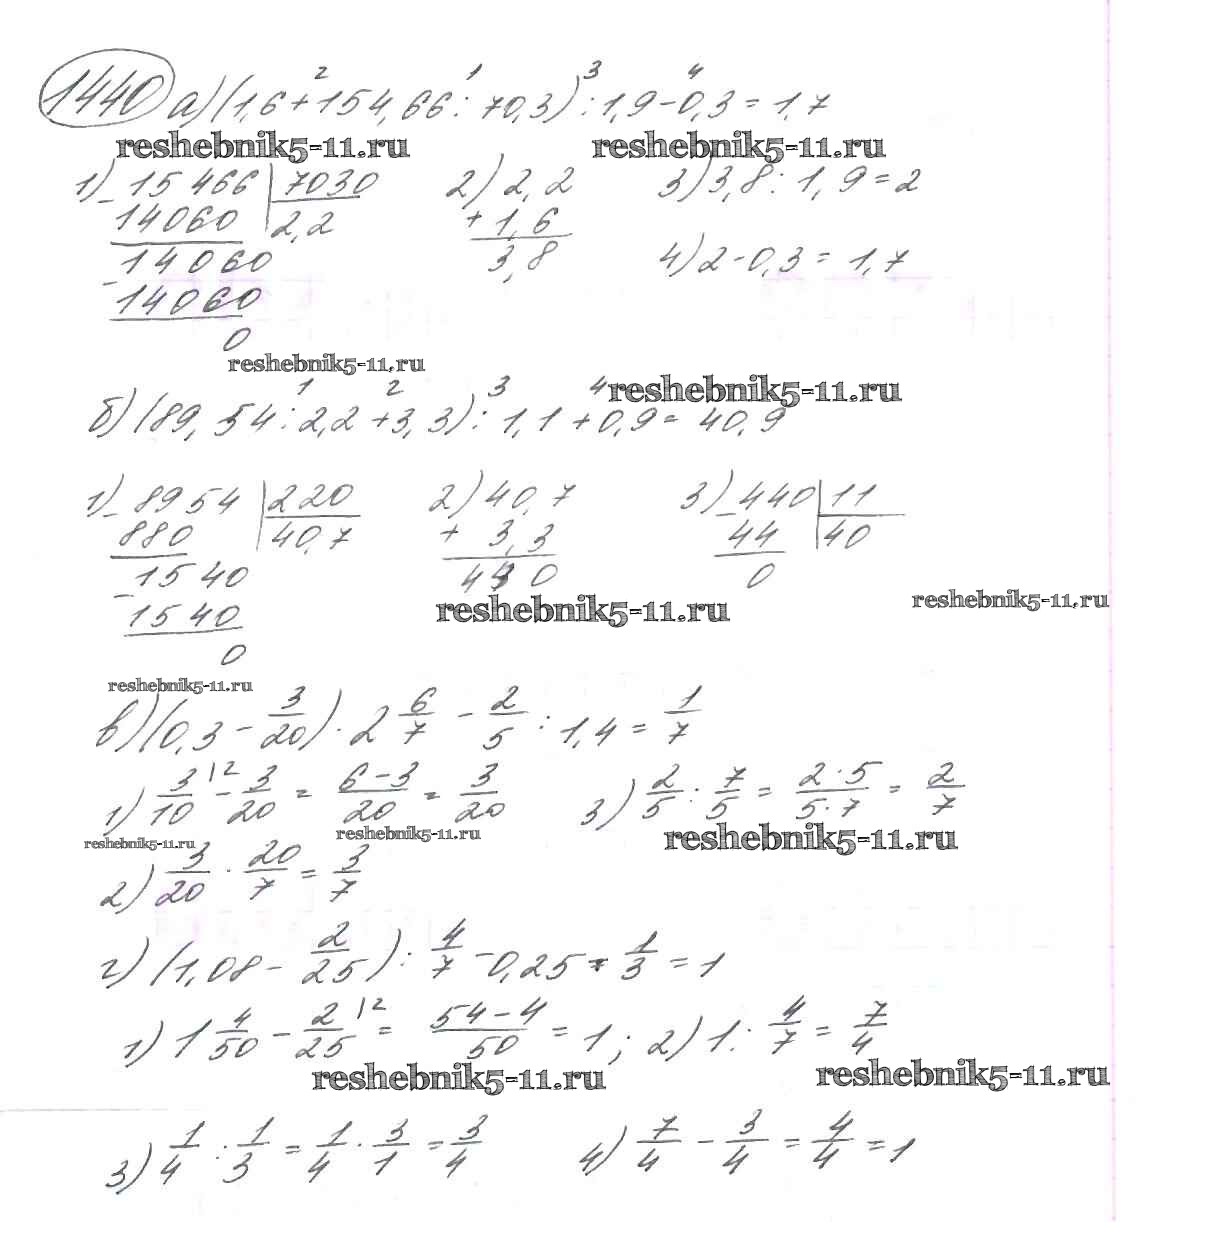 1440 а) (1,6 + 154,66 : 70,3) : 1,9 - 0,3 = 1,7
2 1 3 4
reshebnik5-11.ru reshebnik5-11.ru
1) 15466 | 7030 2) 2,2 3) 3,8 : 1,9 = 2
- 14060 2,2 + 1,6
14060 3,8 4) 2 - 0,3 = 1,7
- 14060
0
reshebnik5-11.ru
1 2 3 4 reshebnik5-11.ru
б) (89,54 : 2,2 + 3,3) : 1,1 + 0,9 = 40,9
1) - 8954 | 220 2) 40,7 3) - 440 | 11
880 40,7 + 3,3 44 40
1540 440 0
- 1540 reshebnik5-11.ru reshebnik5-11.ru
0
reshebnik5-11.ru
в) (0,3 - 3/20) · 2 6/7 - 2/5 : 1,4 = 1/7
1) 3/10 |2 - 3/20 = (6-3)/20 = 3/20 3) 2/5 : 7/5 = (2·5)/(5·7) = 2/7
reshebnik5-11.ru reshebnik5-11.ru reshebnik5-11.ru
2) 3/20 · 20/7 = 3/7
г) (1,08 - 2/25) : 4/7 - 0,25 : 1/3 = 1
1) 1 4/50 - 2/25 |2 = (54-4)/50 = 1; 2) 1 : 4/7 = 7/4
reshebnik5-11.ru reshebnik5-11.ru
3) 1/4 : 1/3 = 1/4 · 3/1 = 3/4 4) 7/4 - 3/4 = 4/4 = 1